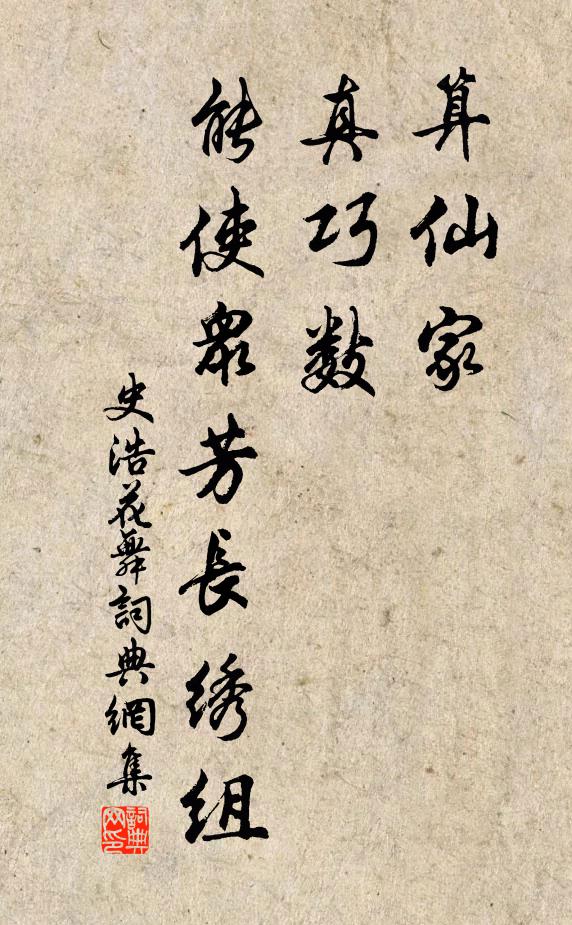 算仙家
真巧數
能使眾芳長绣组
史浩花舞詞典網集
詞典网印